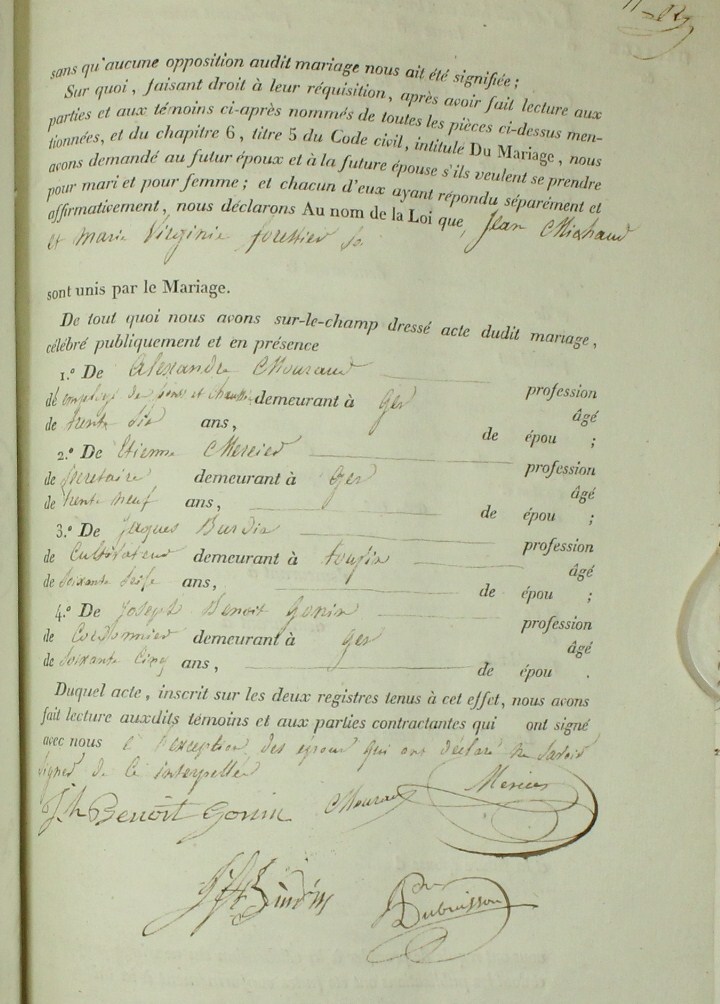 sans qu'aucune opposition audit mariage nous ait été signifiée ;
Sur quoi, faisant droit à leur réquisition, après avoir fait lecture aux
parties et aux témoins ci-après nommés de toutes les pièces ci-dessus men-
tionnées, et du chapitre 6, titre 5 du Code civil, intitulé Du Mariage, nous
avons demandé au futur époux et à la future épouse s'ils veulent se prendre
pour mari et pour femme ; et chacun d'eux ayant répondu séparément et
affirmativement, nous déclarons Au nom de la Loi que, Jean Michaud
et marie Virginie forestier
sont unis par le Mariage.
De tout quoi nous avons sur-le-champ dressé acte dudit mariage,
célébré publiquement et en présence
1.° De Alexandre Mouraud profession
de employé de pons et chaussée demeurant à Gex âgé
de trente six ans, de épou ;
2.° De Etienne Mercier profession
de Secretaire demeurant à Gex âgé
de trente neuf ans, de épou ;
3.° De Jaques Burdin profession
de Cultivateur demeurant à âgé
de Soixante Seise ans, de épou ;
4.° De Joseph Benoit Gonin profession
de Cordonnier demeurant à Gex âgé
de Soixante Cinq ans, de épou .
Duquel acte, inscrit sur les deux registres tenus à cet effet, nous avons
fait lecture auxdits témoins et aux parties contractantes qui ont signé
avec nous à l'exception des epoux qui ont déclaré ne Savoir
Signer de Ce interpellés
Jh Benoit Gonin Mouraud Mercier
Burdin Dubuisson